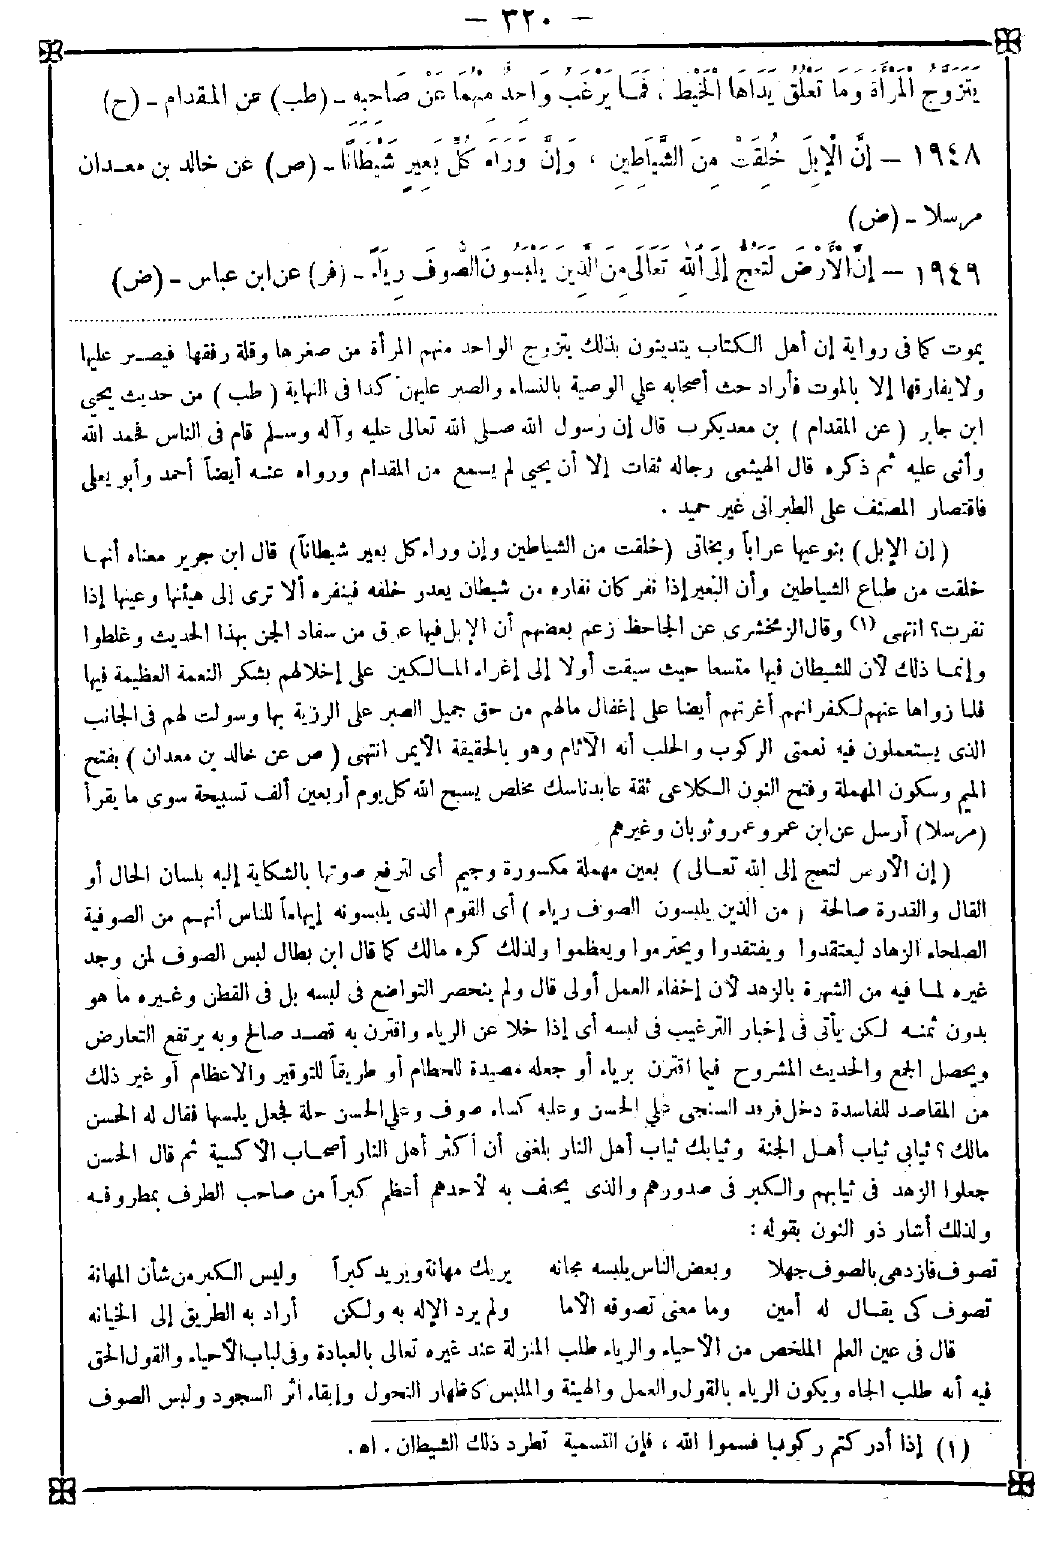 - ٣٢٠ -
يَتَزَوَّجُ الْمَرْأَةَ وَمَا تَعْلُقُ يَدَاهَا الْخَيْطَ ، فَمَا يَرْغَبُ وَاحِدٌ مِنْهُمَا عَنْ صَاحِبِهِ - (طب) عن المقدام - (ح)
١٩٤٨ - إِنَّ الْإِبِلَ خُلِقَتْ مِنَ الشَّيَاطِينِ ، وَإِنَّ وَرَاءَ كُلِّ بَعِيرٍ شَيْطَانًا - (ص) عن خالد بن معدان
مرسلا - (ض)
١٩٤٩ - إِنَّ الْأَرْضَ لَتَعِجُّ إِلَى اللهِ تَعَالَى مِنَ الَّذِينَ يَلْبَسُونَ الصُّوفَ رِيَاءً - (فر) عن ابن عباس - (ض)
يموت كما فى رواية إن أهل الكتاب يتدينون بذلك يتزوج الواحد منهم المرأة من صغرها وقلة رفقها فيصبر عليها
ولا يفارقها إلا بالموت فأراد حث أصحابه على الوصية بالنساء والصبر عليهن كذا فى النهاية ( طب ) من حديث يحيى
ابن جابر ( عن المقدام ) بن معديكرب قال إن رسول الله صلى الله تعالى عليه وآله وسلم قام فى الناس فحمد الله
وأثنى عليه ثم ذكره قال الهيثمى رجاله ثقات إلا أن يحيى لم يسمع من المقدام ورواه عنه أيضاً أحمد وأبو يعلى
فاقتصار المصنف على الطبرانى غير حميد .
( إن الإبل ) بنوعيها عراباً وبخاتى (خلقت من الشياطين وإن وراء كل بعير شيطاناً) قال ابن جرير معناه أنها
خلقت من طباع الشياطين وأن البعير إذا نفر كان نفاره من شيطان يعدو خلفه فينفره ألا ترى إلى هيئتها وعينها إذا
نفرت؟ انتهى (١) وقال الزمخشرى عن الجاحظ زعم بعضهم أن الإبل فيها عرق من سفاد الجن بهذا الحديث وغلطوا
وإنما ذلك لأن للشيطان فيها متسعا حيث سبقت أولا إلى إغراء المالكين على إخلالهم بشكر النعمة العظيمة فيها
فلما زواها عنهم لكفرانهم أغرتهم أيضا على إغفال مالهم من حق جميل الصبر على الرزية بها وسولت لهم فى الجانب
الذى يستعملون فيه نعمتى الركوب والحلب أنه الآثام وهو بالحقيقة الأيمن انتهى ( ص عن خالد بن معدان ) بفتح
الميم وسكون المهملة وفتح النون الكلاعى ثقة عابد ناسك مخلص يسبح الله كل يوم أربعين ألف تسبيحة سوى ما يقرأ
(مرسلا) أرسل عن ابن عمر وعمرو ثوبان وغيرهم
( إن الأرض لتعج إلى الله تعالى ) بعين مهملة مكسورة وجيم أى لترفع صوتها بالشكاية إليه بلسان الحال أو
القال والقدرة صالحة ( من الذين يلبسون الصوف رياء ) أى القوم الذى يلبسونه إيهاماً للناس أنهم من الصوفية
الصلحاء الزهاد ليعتقدوا ويفتقدوا ويحترموا ويعظموا ولذلك كره مالك كما قال ابن بطال لبس الصوف لمن وجد
غيره لما فيه من الشهرة بالزهد لأن إخفاء العمل أولى قال ولم ينحصر التواضع فى لبسه بل فى القطن وغيره ما هو
بدون ثمنه لكن يأتى فى إخبار الترغيب فى لبسه أى إذا خلا عن الرياء واقترن به قصد صالح وبه يرتفع التعارض
ويحصل الجمع والحديث المشروح فيما اقترن برياء أو جعله مصيدة للحطام أو طريقاً للتوقير والاعظام أو غير ذلك
من المقاصد للفاسدة دخل فرقد السنجى على الحسن وعليه كساء صوف وعلى الحسن حلة فجعل يلمسها فقال له الحسن
مالك ؟ ثيابى ثياب أهل الجنة وثيابك ثياب أهل النار بلغنى أن أكثر أهل النار أصحاب الاكسية ثم قال الحسن
جعلوا الزهد فى ثيابهم والكبر فى صدورهم والذى يحلف به لأحدهم أعظم كبراً من صاحب الطرف بمطروفه
ولذلك أشار ذو النون بقوله :
تصوف فازدهى بالصوف جهلا وبعض الناس يلبسه مجانه يريك مهانة ويريد كبراً وليس الكبر من شأن المهانة
تصوف كى يقال له أمين وما معنى تصوفه الأما ولم يرد الإله به ولكن أراد به الطريق إلى الخيانه
قال فى عين العلم الملخص من الأحياء والرياء طلب المنزلة عند غيره تعالى بالعبادة وفى لباب الأحياء والقول الحق
فيه أنه طلب الجاه ويكون الرياء بالقول والعمل والهيئة والملبس كاظهار النحول وإبقاء أثر السجود ولبس الصوف
(١) إذا أدركتم ركوبها فسموا الله ، فإن التسمية تطرد ذلك الشيطان . اه .